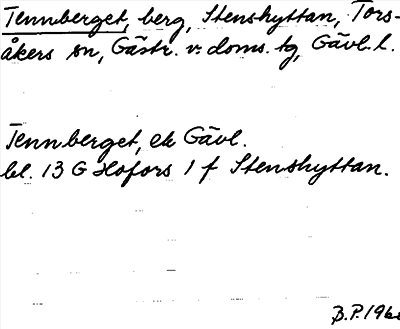 Tennberget, berg, Stenshyttan, Tors-
åkers sn, Gästr. v. doms. tg, Gävl. l.
Tennberget, ek Gävl.
bl. 13 G Hofors 1 f Stenshyttan.
B.P. 196